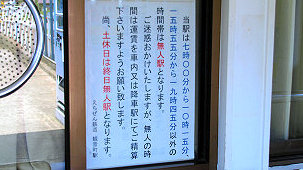 当駅は七時〇〇分から一〇時一五分、
一五時五五分から一九時四五分以外の
時間帯は無人駅となります。
ご迷惑おかけいたしますが、無人の時
間は運賃を車内又は降車駅にてご精算
下さいますようお願い致します。
尚、土休日は終日無人駅となります。
えちぜん鉄道 観音町駅